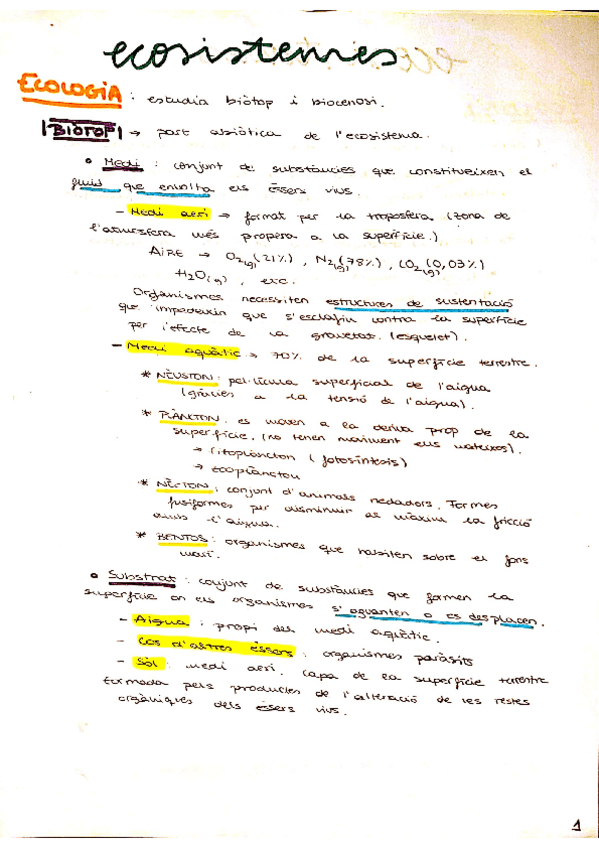 ecosistemes
ECOLOGIA : estudia biòtop i biocenosi.
|BIÒTOP| → part abiòtica de l'ecosistema.
• Medi : conjunt de substàncies que constitueixen el
fluid que envolta els éssers vius.
- Medi aeri → format per la troposfera (zona de
l'atmosfera més propera a la superfície.)
AIRE → O2(g) (21%), N2(g) (78%), CO2(g) (0,03%)
H2O(g), exc.
Organismes necessiten estructures de sustentació
que impedeixin que s'esclafin contra la superfície
per l'efecte de la gravetat. (esquelet).
- Medi aquàtic → 70% de la superfície terrestre.
* NÈUSTON : pel·lícula superficial de l'aigua
(gràcies a la tensió de l'aigua).
* PLÀNCTON : es mouen a la deriva prop de la
superfície. (no tenen moviment ells mateixos).
→ fitoplàncton (fotosíntesis)
→ zooplàncton
* NÈCTON : conjunt d'animals nedadors. Formes
fusiformes per disminuir al màxim la fricció
amb l'aigua.
* BENTOS : organismes que habiten sobre el fons
marí.
• Substrat : conjunt de substàncies que formen la
superfície on els organismes s'aguanten o es desplacen.
- Aigua : propi del medi aquàtic.
- Cos d'altres éssers : organismes paràsits
- Sòl : medi aeri. Capa de la superfície terrestre
formada pels productes de l'alteració de les restes
orgàniques dels éssers vius.
1